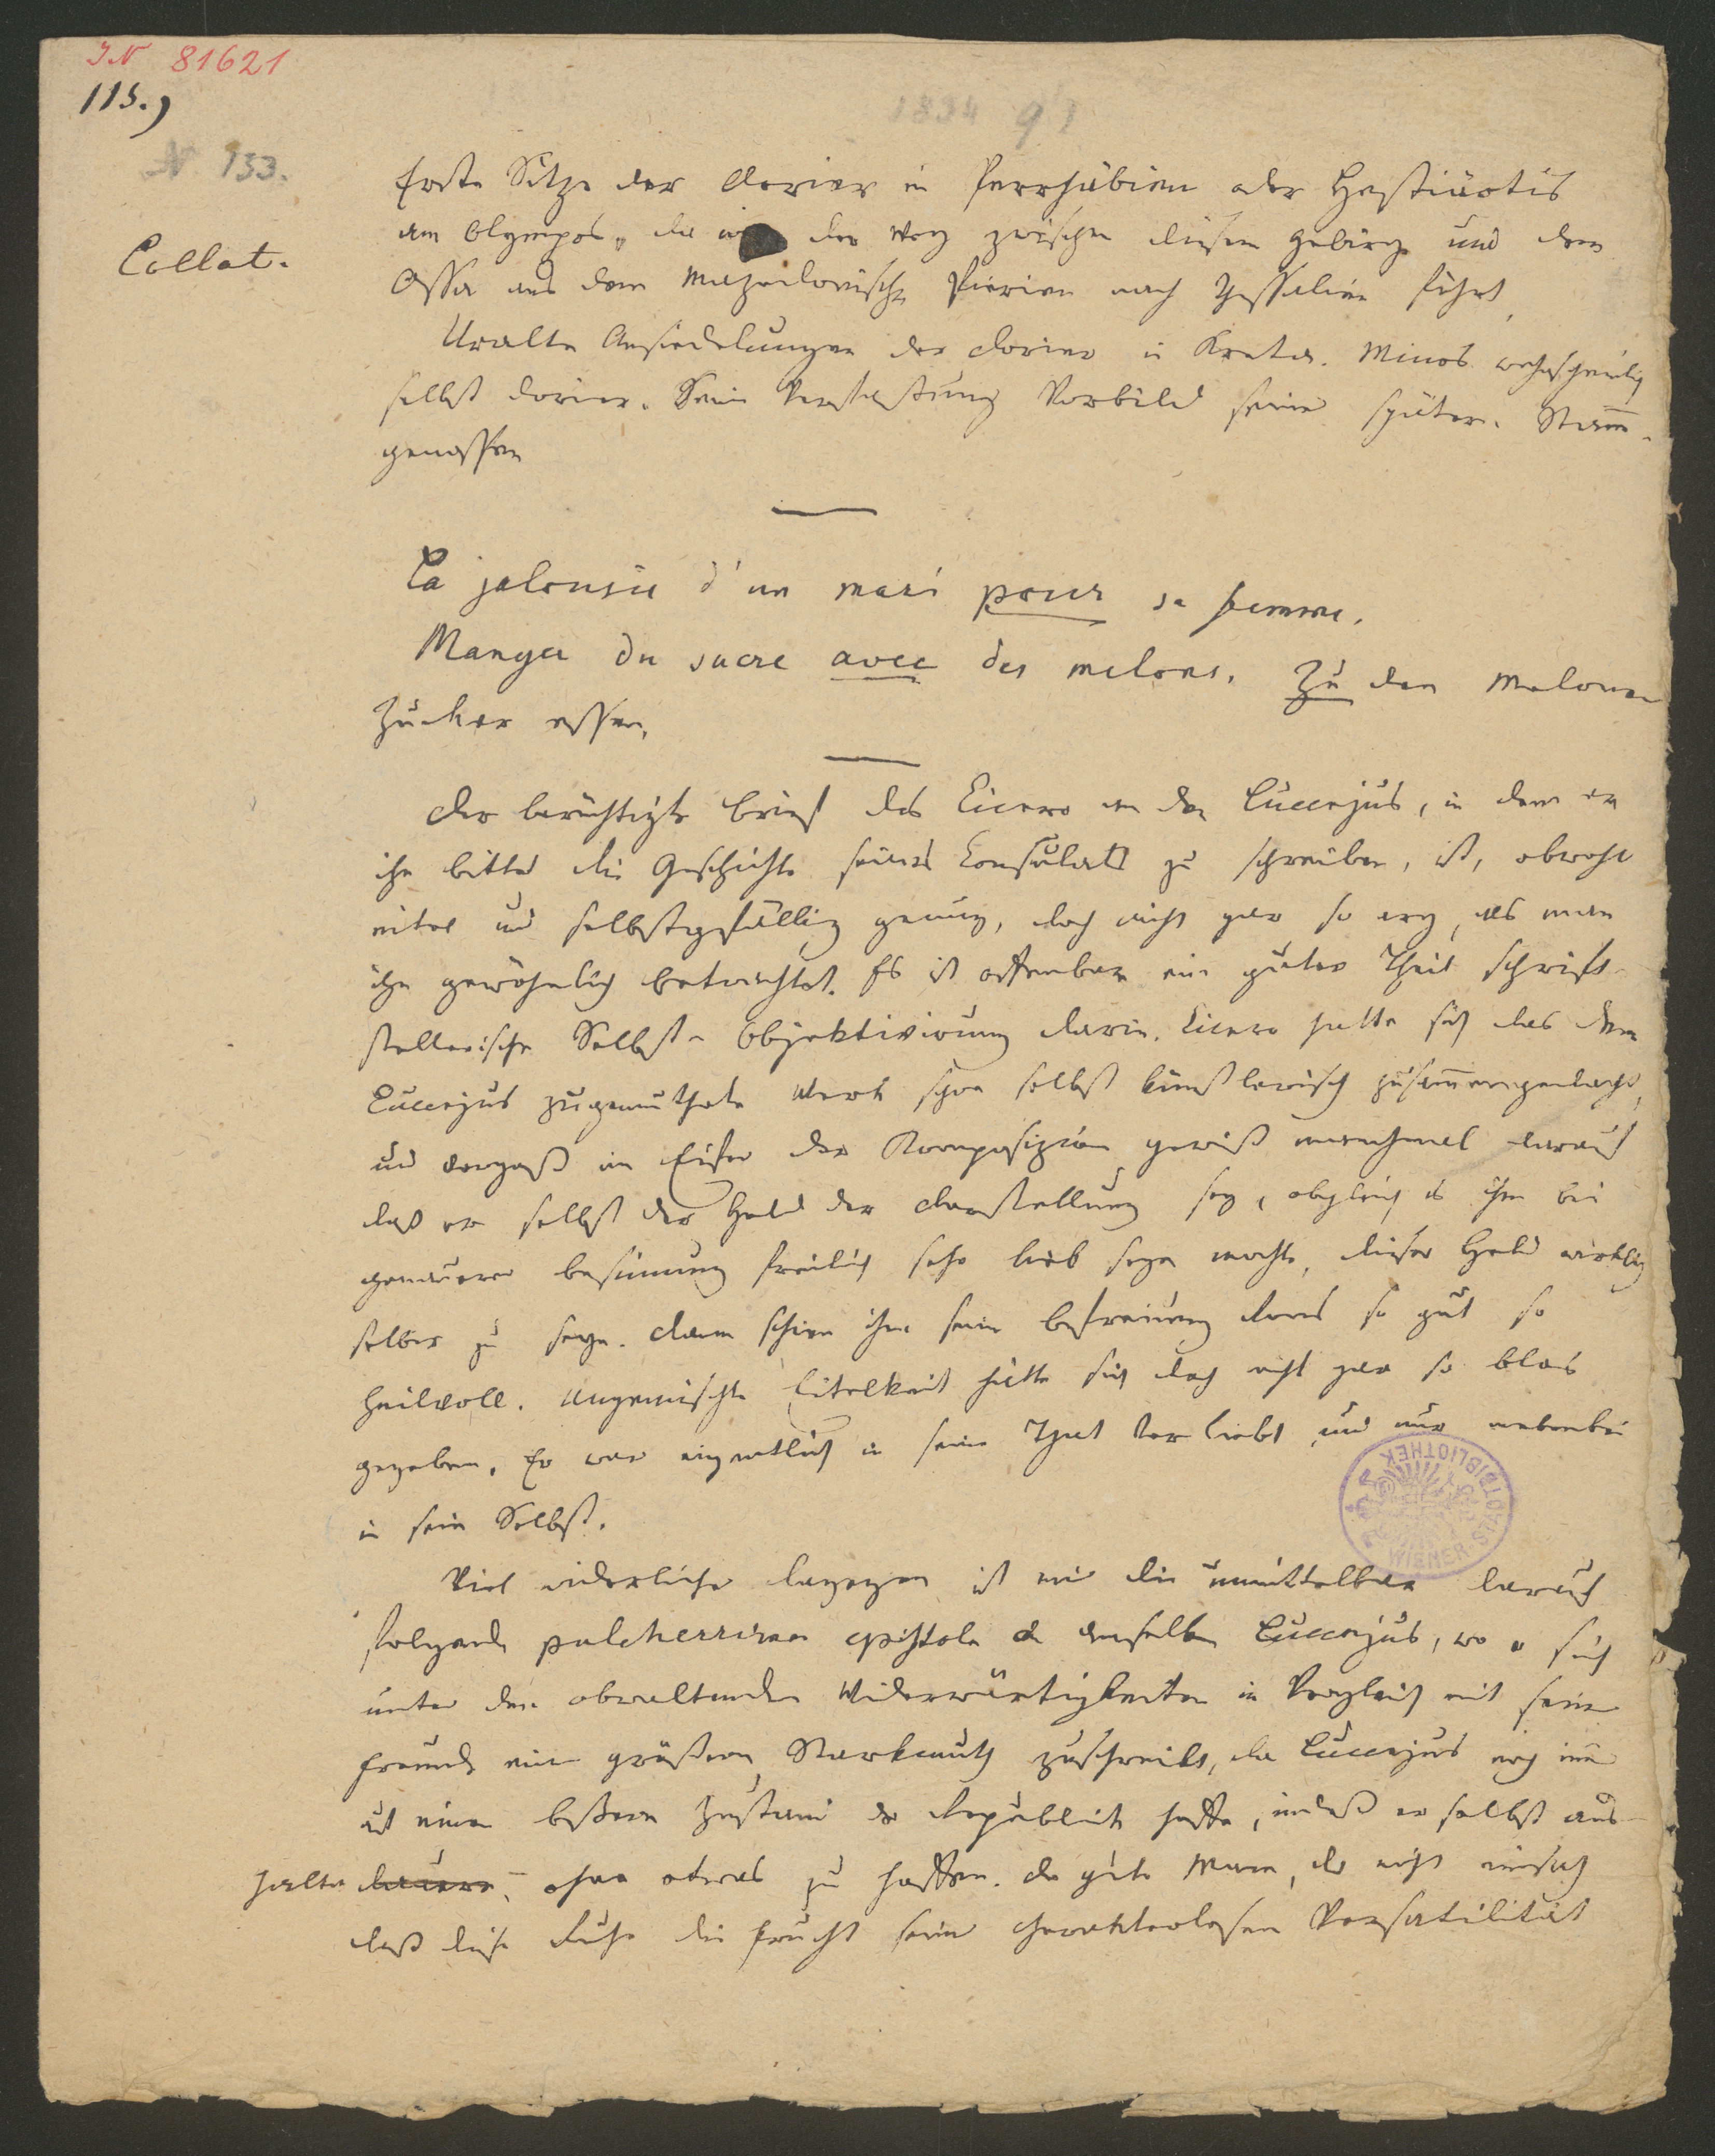 IN 81621
115.)
1834 91
N 133.
Collat.
Erste Sitze der Dorier in Perrhäbien oder Hestiäotis
am Olympos, da wo der Weg zwischen diesem Gebirg und dem
Ossa aus dem mazedonischen Pierien nach Thessalien führt.
Uralte Ansiedelungen der Dorier in Kreta. Minos wahrscheinlich
selbst Dorier. Seine Verfassung Vorbild seiner später. Stamm-
genossen
La jalousie d'un mari pour sa femme.
Manger du sucre avec des melons. Zu den Melonen
Zucker essen.
Der berüchtigte Brief des Cicero an den Luccejus, in dem er
ihn bittet die Geschichte seines Consulats zu schreiben, ist, obwohl
eitel und selbstgefällig genug, doch nicht gar so arg, als man
ihn gewöhnlich betrachtet. Es ist offenbar ein guter Theil schrift-
stellerische Selbst-Objektivirung darin. Cicero hatte sich das dem
Luccejus zugemuthete Werk schon selbst künstlerisch zusammengedacht,
und vergaß im Eifer der Komposizion gewiß manchmal darauf
daß er selbst der Held der Darstellung sey, obgleich es ihm bei
genauerer Besinnung freilich sehr lieb seyn mochte, dieser Held wirklich
selber zu seyn. Dann schien ihm seine Befreiung Roms so gut so
heilvoll. Ungemischte Eitelkeit hätte sich doch nicht gar so blos
gegeben. Er war eigentlich in seine That verliebt und nur nebenbei
in sein Selbst.
Viel widerlicher dagegen ist mir die unmittelbar darauf
folgende pulcherrima epistola an denselben Luccejus, wo er sich
unter den obwaltenden Widerwärtigkeiten in Vergleich mit seinem
Freunde einen größern Starkmuth zuschreibt, da Luccejus noch immer
auf einen bessern Zustand der Republik hoffe, indeß er selbst aus-
halte dauere, ohne etwas zu hoffen. Der gute Mann, der nicht einsah
daß diese Ruhe die Frucht seiner charakterlosen Versatilität
WIENER STADTBIBLIOTHEK